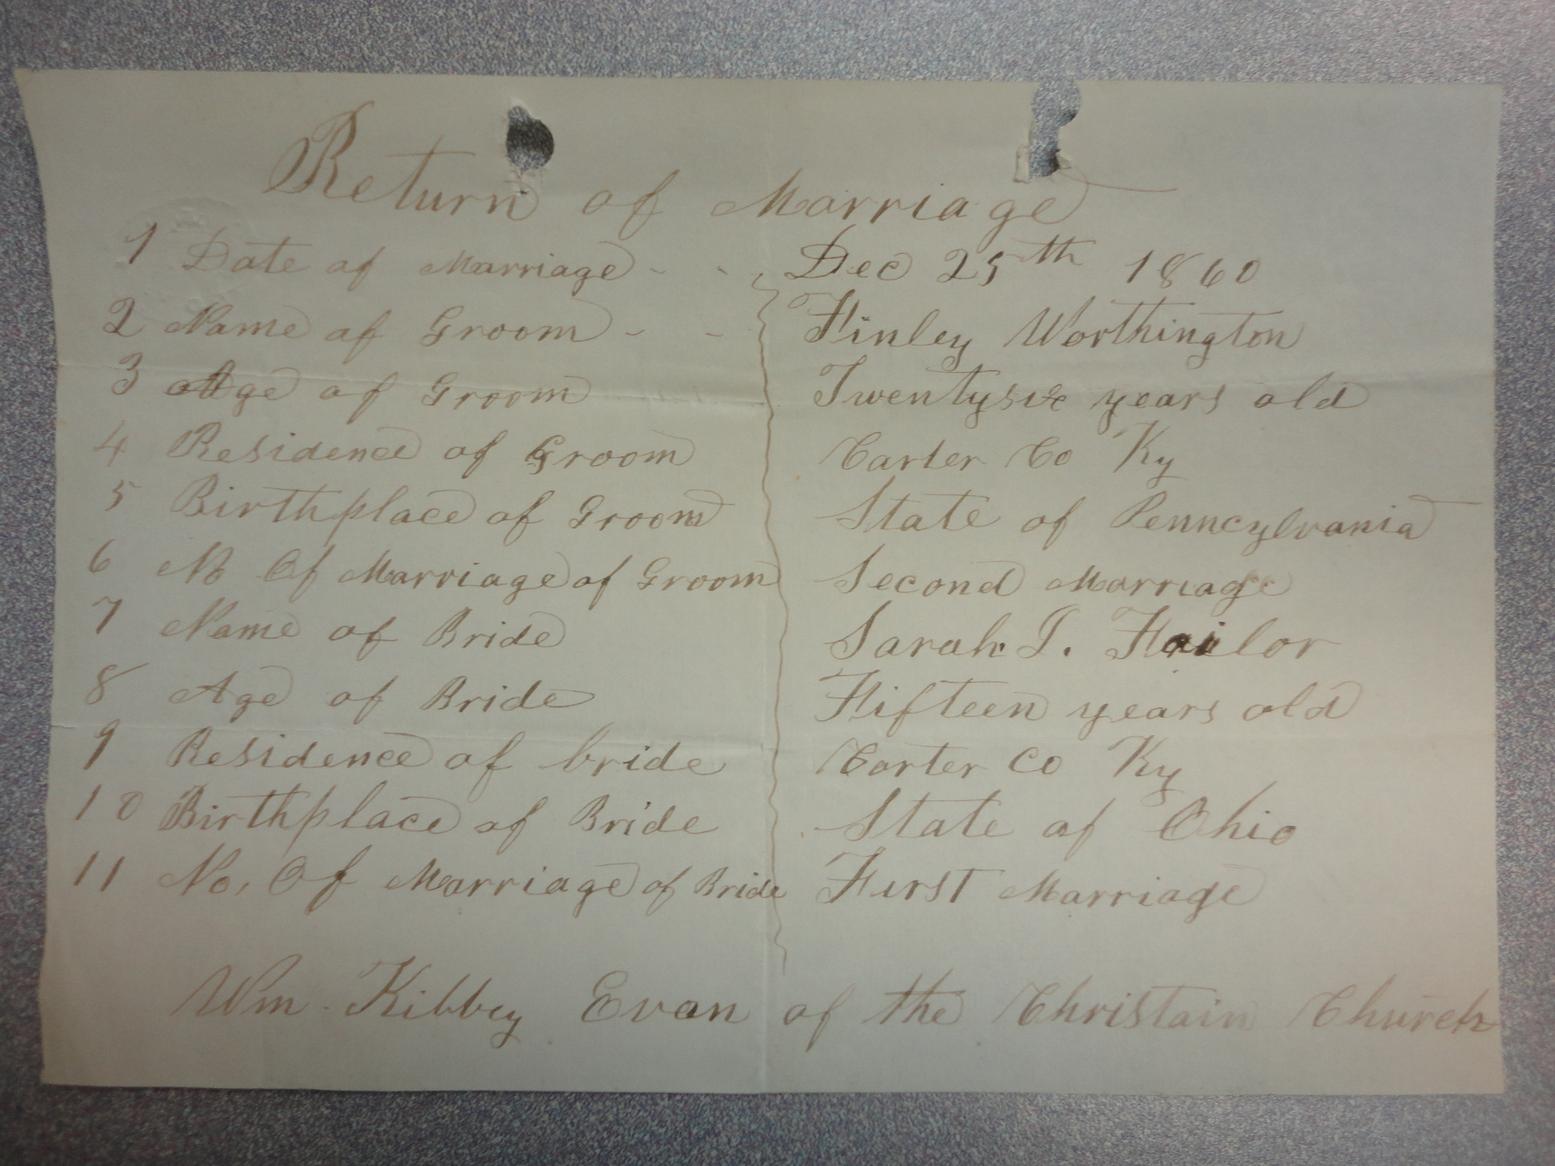 Return of Marriage
1 Date of Marriage - - Dec 25th 1860
2 Name of Groom - - Finley Worthington
3 Age of Groom Twentysix years old
4 Residence of Groom Carter Co Ky
5 Birthplace of Groom State of Penncylvania
6 No Of Marriage of Groom Second Marriage
7 Name of Bride Sarah J. Failor
8 Age of Bride Fifteen years old
9 Residence of bride Carter Co Ky
10 Birthplace of Bride State of Ohio
11 No, Of Marriage of Bride First Marriage
Wm Kibbey Evan of the Christain Church